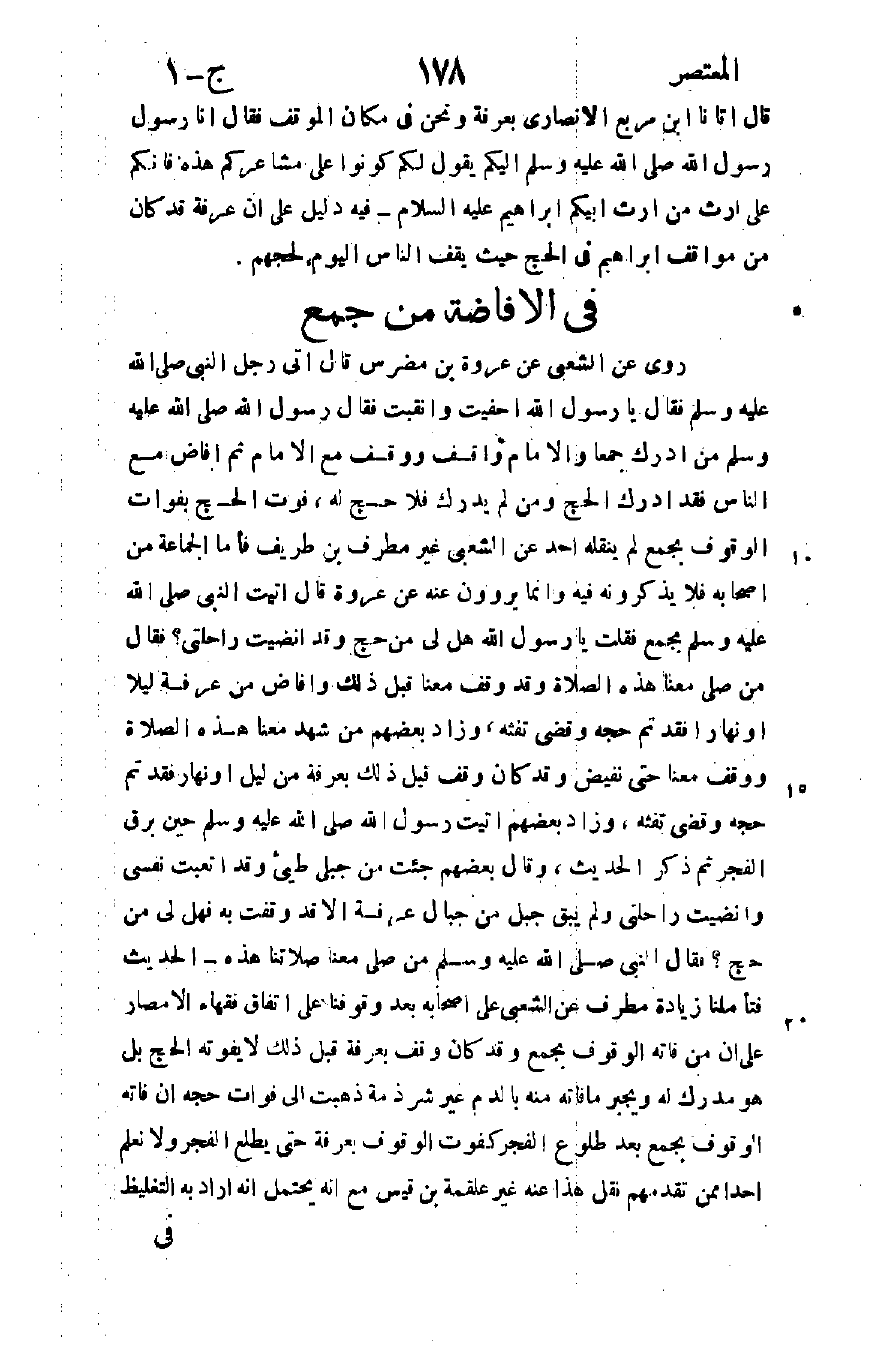 المعتصر ١٧٨ ج-١
قال اتانا ابن مربع الانصارى بعرفة ونحن فى مكان الموقف فقال انا رسول
رسول الله صلى الله عليه وسلم اليكم يقول لكم كونوا على مشاعركم هذه فانكم
على ارث من ارث ابيكم ابراهيم عليه السلام - فيه دليل على ان عرفة قد كان
من مواقف ابراهيم فى الحج حيث يقف الناس اليوم لحجهم .
فى الافاضة من جمع
روى عن الشعبى عن عروة بن مضرس قال اتى رجل النبى صلى الله
عليه وسلم فقال يا رسول الله احفيت وانقبت فقال رسول الله صلى الله عليه
وسلم من ادرك جمعا والامام واقف ووقف مع الامام ثم افاض مع
الناس فقد ادرك الحج ومن لم يدرك فلا حج له ، فوت الحج بفوات
الوقوف بجمع لم ينقله احد عن الشعبى غير مطرف بن طريف فأما الجماعة من ١٠
اصحابه فلا يذكرونه فيه وانما يروون عنه عن عروة قال اتيت النبى صلى الله
عليه وسلم بجمع فقلت يا رسول الله هل لى من حج وقد انضيت راحلتى؟ فقال
من صلى معنا هذه الصلاة وقد وقف معنا قبل ذلك وافاض من عرفة ليلا
اونهارا فقد تم حجه وقضى تفثه ، وزاد بعضهم من شهد معنا هذه الصلاة
ووقف معنا حتى نفيض وقد كان وقف قبل ذلك بعرفة من ليل اونهار فقد تم ١٥
حجه وقضى تفثه ، وزاد بعضهم اتيت رسول الله صلى الله عليه وسلم حين برق
الفجر ثم ذكر الحديث ، وقال بعضهم جئت من جبلى طيئ وقد اتعبت نفسى
وانضيت راحلتى ولم يبق جبل من جبال عرفة الا قد وقفت به فهل لى من
حج ؟ فقال النبى صلى الله عليه وسلم من صلى معنا صلاتنا هذه - الحديث
فتأملنا زيادة مطرف عن الشعبى على اصحابه بعد وقوفنا على اتفاق فقهاء الامصار ٢٠
على ان من فاته الوقوف بجمع وقد كان وقف بعرفة قبل ذلك لايفوته الحج بل
هو مدرك له ويجبر مافاته منه بالدم غير شرذمة ذهبت الى فوات حجه ان فاته
الوقوف بجمع بعد طلوع الفجر كفوت الوقوف بعرفة حتى يطلع الفجر ولا نعلم
احدا ممن تقدمهم نقل هذا عنه غير علقمة بن قيس مع انه يحتمل انه اراد به التغليظ
فى